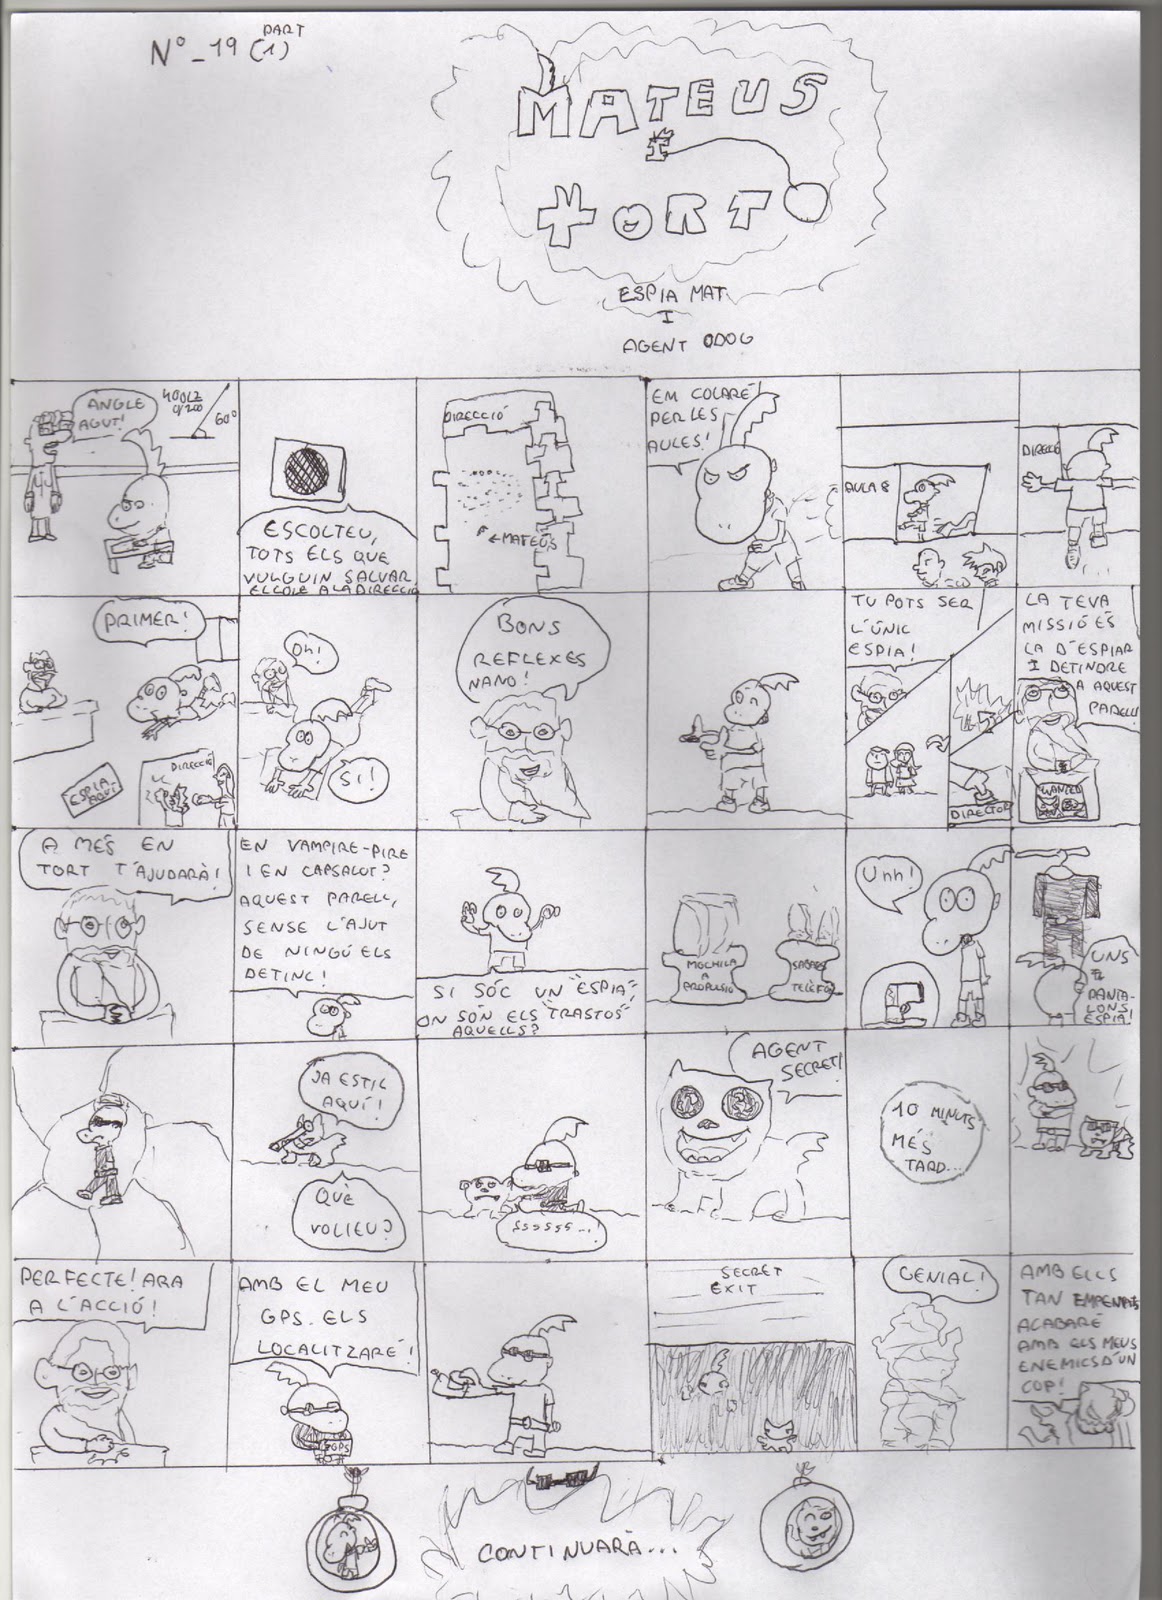 Nº_19 (1)
PART
MATEUS
I
TORT
ESPIA MAT
I
AGENT ODOG
ANGLE
AGUT!
60º
ESCOLTEU,
TOTS ELS QUE
VULGUIN SALVAR
EL COLE A LA DIRECCIÓ
DIRECCIÓ
←MATEUS
EM COLARÉ
PER LES
AULES!
AULA 8
DIRECCIÓ
PRIMER!
ESPIA
AQUÍ
DIRECCIÓ
Oh!
SI!
BONS
REFLEXES
NANO!
TU POTS SER
L'ÚNIC
ESPIA!
DIRECTOR
LA TEVA
MISSIÓ ÉS
LA D'ESPIAR
I DETINDRE
A AQUEST
PARELL!
WANTED
A MÉS EN
TORT T'AJUDARÀ!
EN VAMPIRE-PIRE
I EN CAPSALOT?
AQUEST PARELL,
SENSE L'AJUT
DE NINGÚ ELS
DETINC!
SI SÓC UN "ESPIA",
ON SÓN ELS "TRASTOS"
AQUELLS?
MOCHILA
A
PROPULSIÓ
SABATA
TELÈFON
Uhh!
UNS
PANTA-
LONS
ESPIA!
JA ESTIC
AQUÍ!
QUÈ
VOLIEU?
SSSSSS...!
AGENT
SECRET!
10 MINUTS
MÉS
TARD...
PERFECTE! ARA
A L'ACCIÓ!
AMB EL MEU
GPS. ELS
LOCALITZARÉ!
GPS
SECRET
EXIT
GENIAL!
AMB ELLS
TAN EMPENYATS
ACABARÉ
AMB ELS MEUS
ENEMICS D'UN
COP!
CONTINUARÀ...